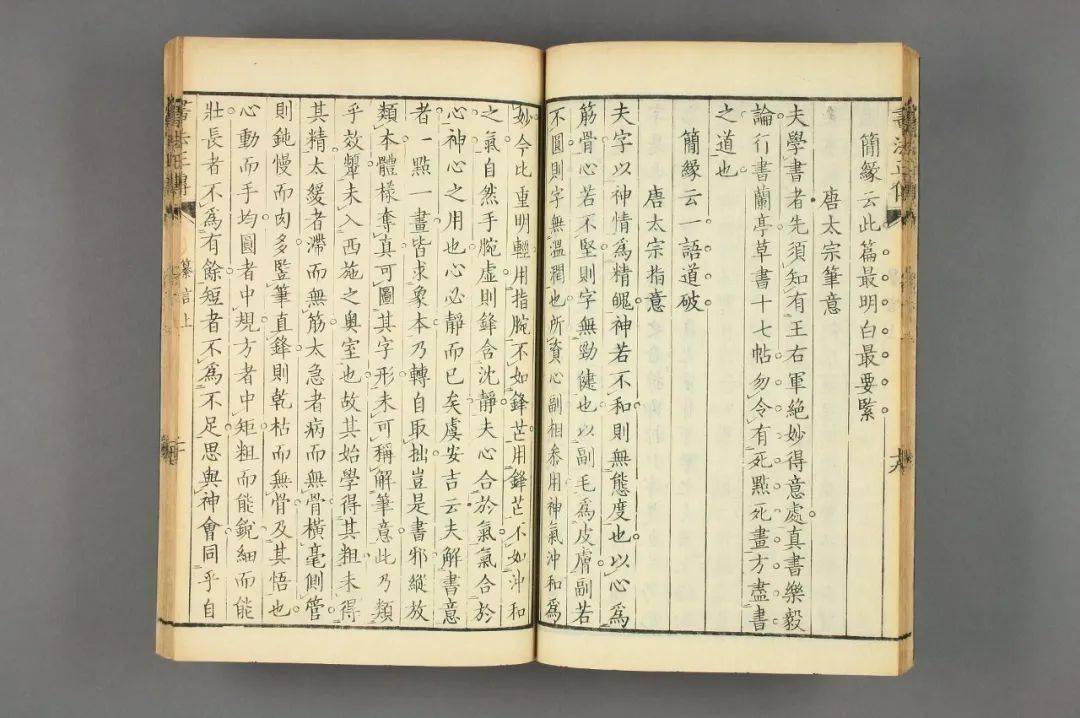 簡緣云此篇最明白最要緊
唐太宗筆意
夫學書者先須知有王右軍絶妙得意處真書樂毅
論行書蘭亭草書十七帖勿令有死點死畫方盡書
之道也
簡緣云一語道破
唐太宗指意
夫字以神情爲精魄神若不和則無態度也以心爲
筋骨心若不堅則字無勁健也以副毛爲皮膚副若
不圓則字無溫潤也所資心副相參用神氣沖和爲
妙今比重明輕用指腕不如鋒芒用鋒芒不如沖和
之氣自然手腕虛則鋒含沈靜夫心合於氣氣合於
心神心之用也心必靜而已矣虞安吉云夫解書意
者一點一畫皆求象本乃轉自取拙豈是書邪縱放
類本體樣奪真可圖其字形未可稱解筆意此乃類
乎效顰未入西施之奧室也故其始學得其粗未得
其精太緩者滯而無筋太急者病而無骨橫毫側管
則鈍慢而肉多豎筆直鋒則乾枯而無骨及其悟也
心動而手均圓者中規方者中矩粗而能銳細而能
壯長者不爲有餘短者不爲不足思與神會同乎自
書法正傳
纂言上